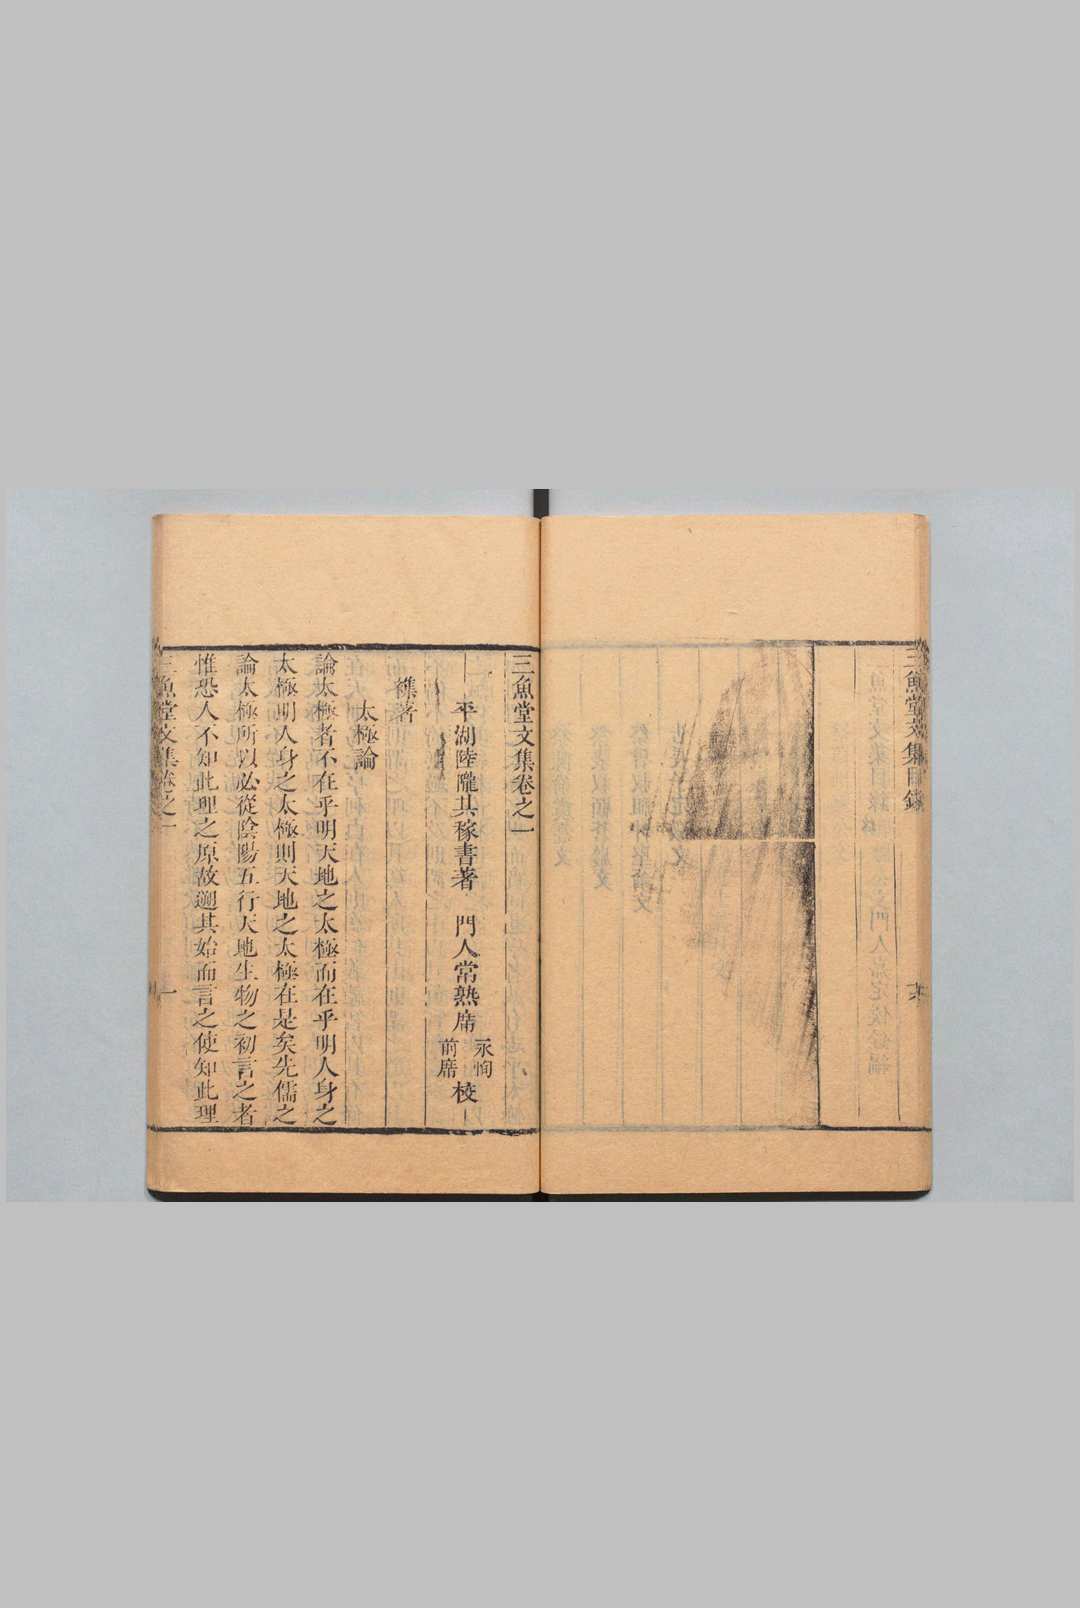 三魚堂文集目錄
三魚堂文集卷之一
平湖陸隴其稼書著 門人常熟席永恂前席校
襍著
太極論
論太極者不在乎明天地之太極而在乎明人身之
太極明人身之太極則天地之太極在是矣先儒之
論太極所以必從陰陽五行天地生物之初言之者
惟恐人不知此理之原故遡其始而言之使知此理
三魚堂文集卷之一
一